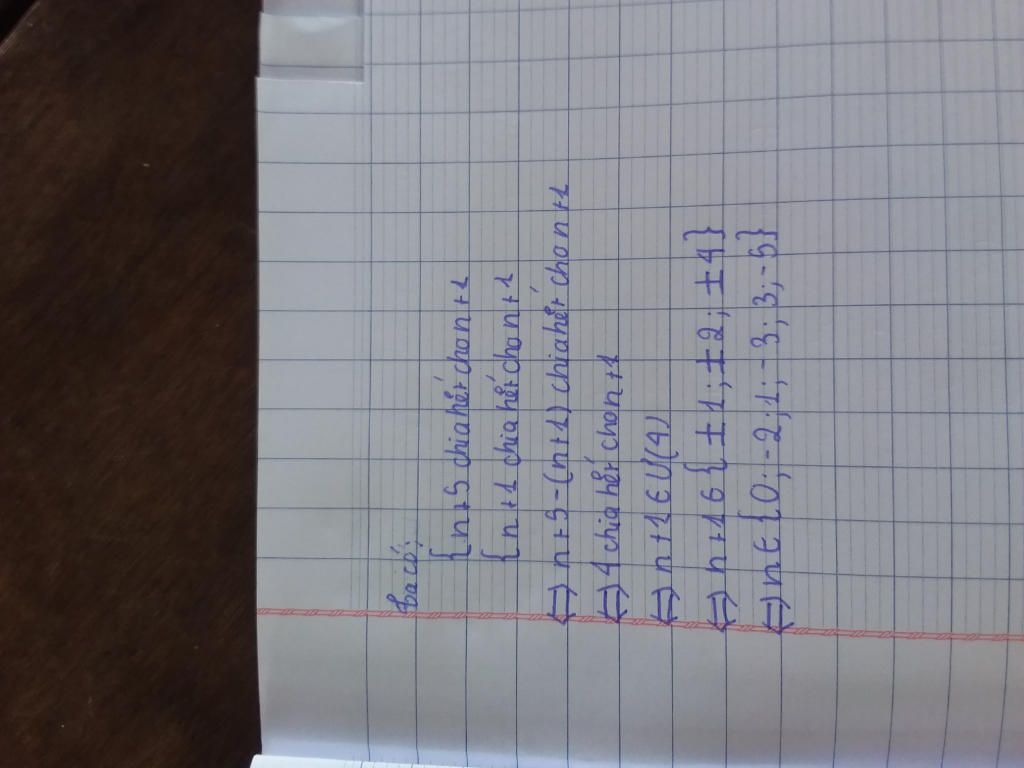 Ta có:
{ n+5 chia hết cho n+1
{ n+1 chia hết cho n+1
<=> n+5-(n+1) chia hết cho n+1
<=> 4 chia hết cho n+1
<=> n+1 ∈ Ư(4)
<=> n+1 ∈ { ±1; ±2; ±4}
<=> n ∈ {0; -2; 1; -3; 3; -5}